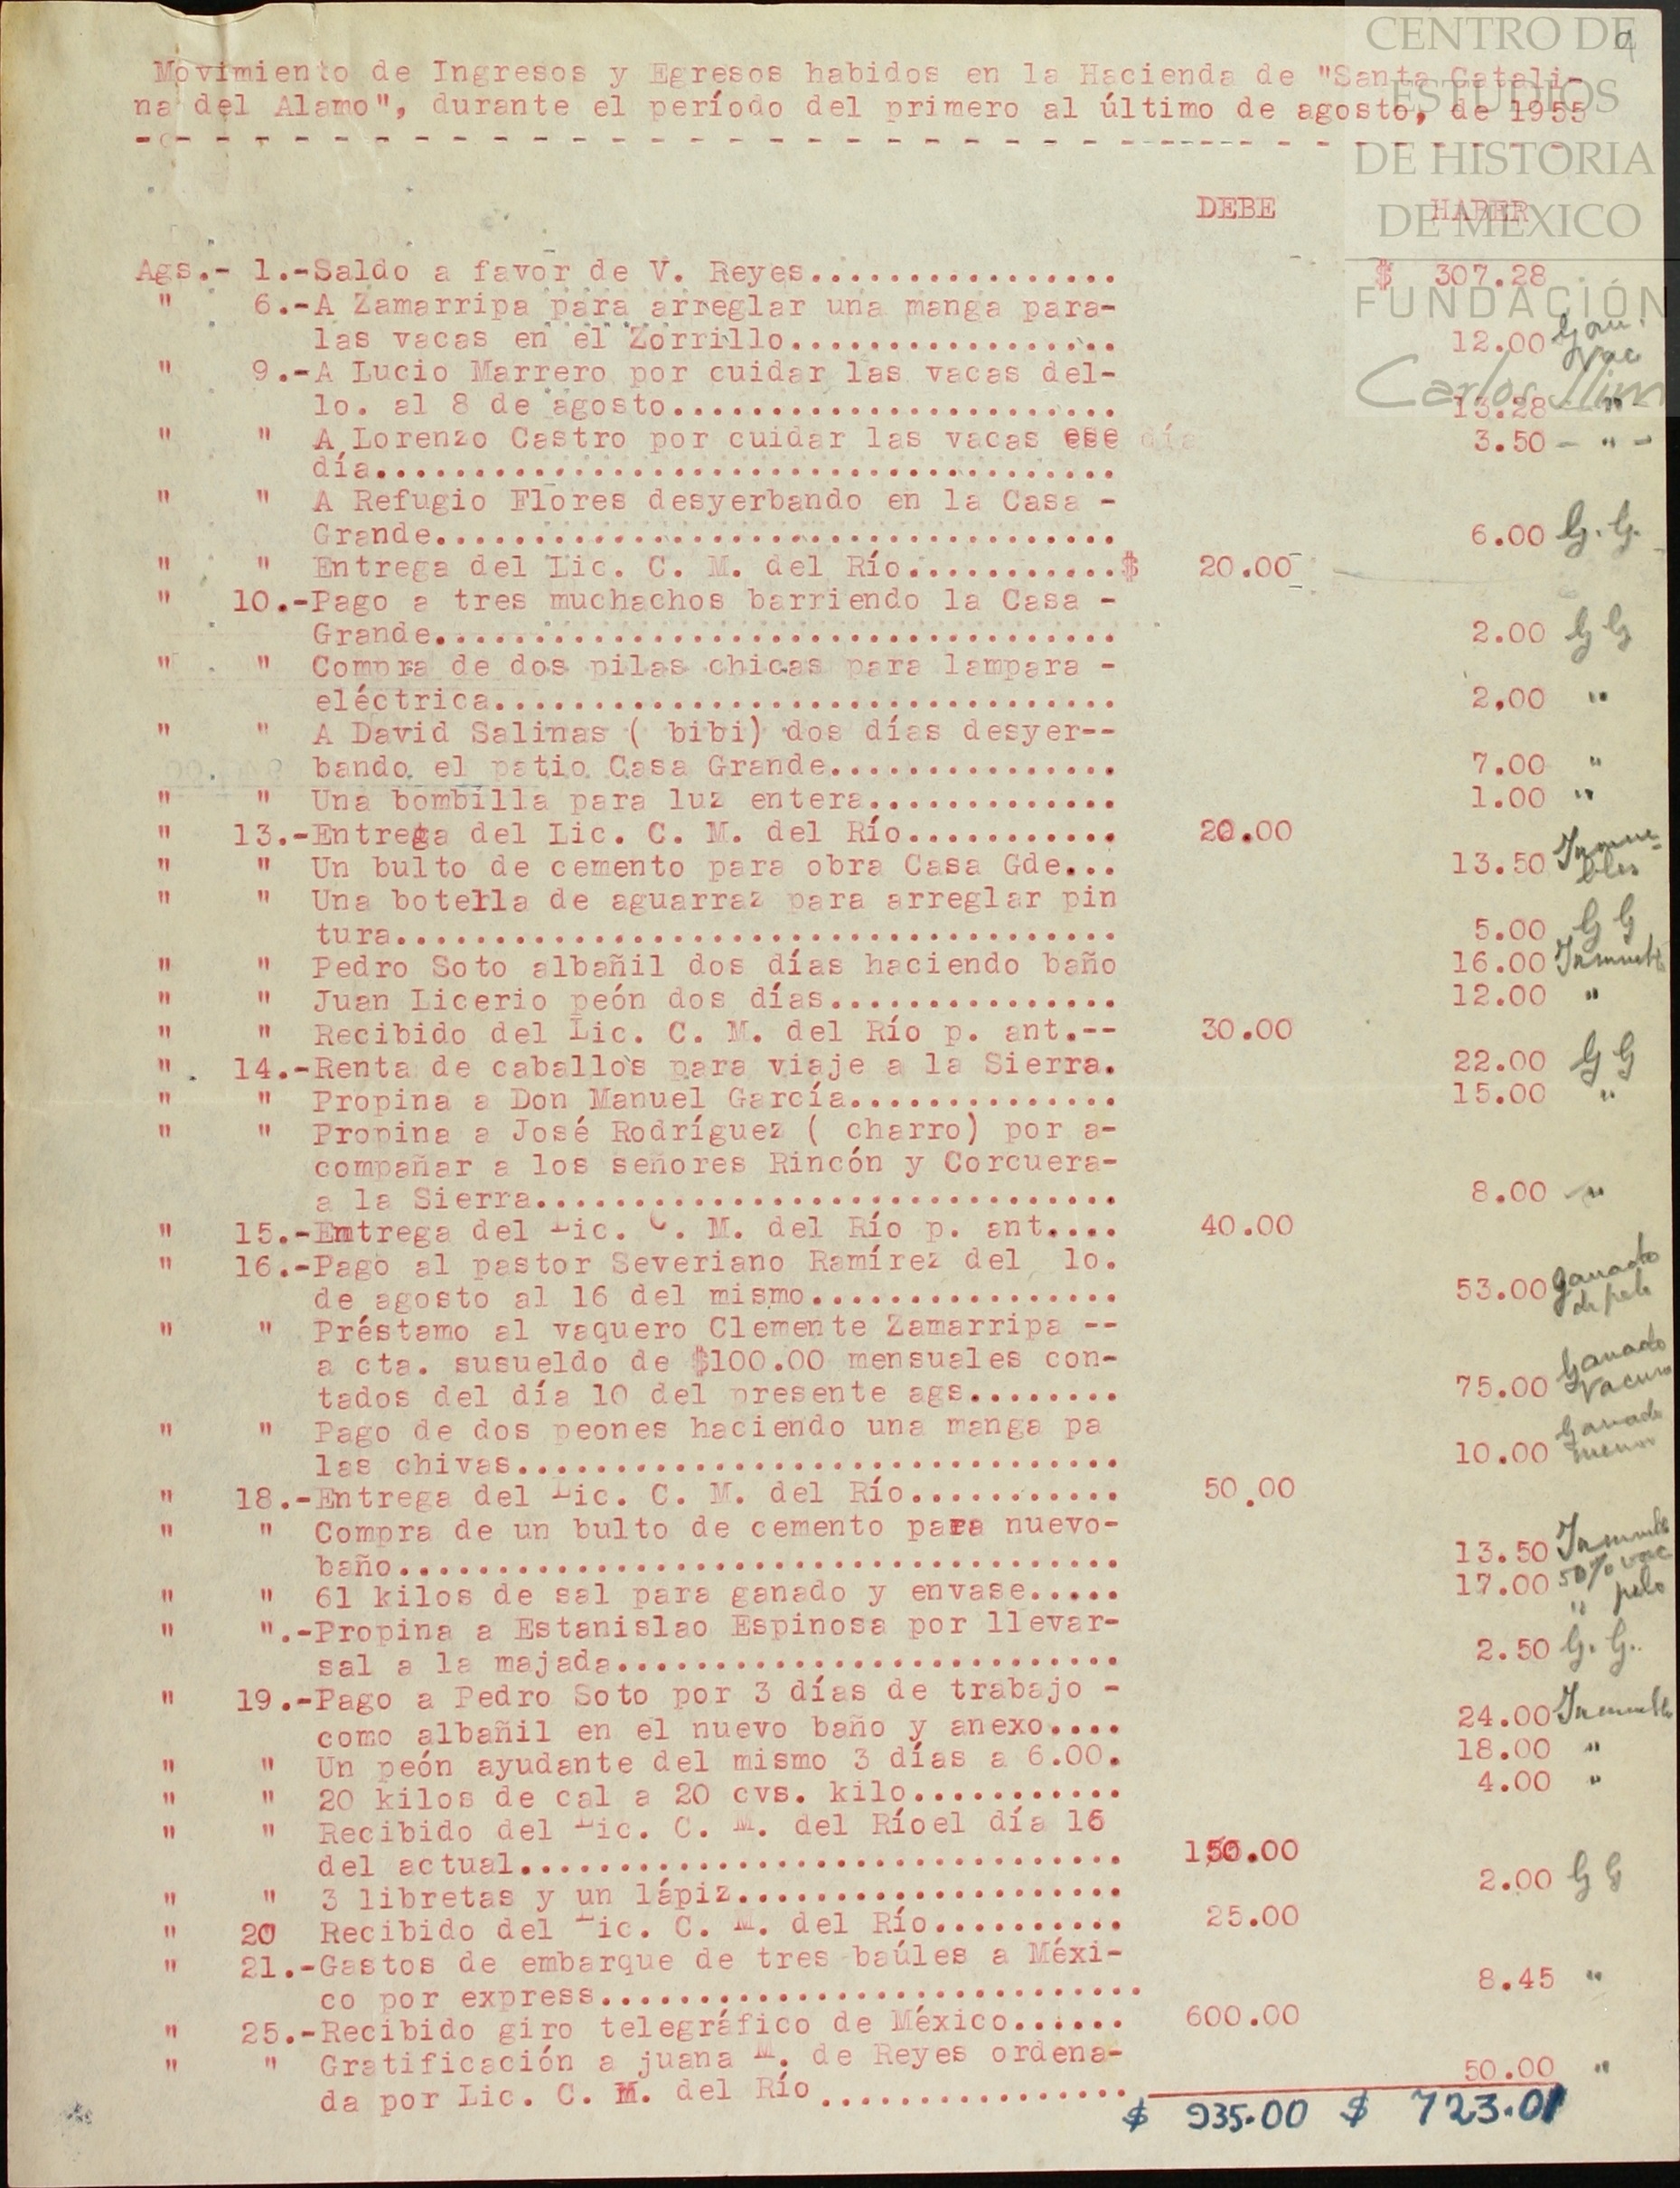 CENTRO DE
ESTUDIOS
DE HISTORIA
DE MEXICO
FUNDACIÓN
Carlos Slim
Movimiento de Ingresos y Egresos habidos en la Hacienda de "Santa Catali-
na del Alamo", durante el período del primero al último de agosto, de 1955
DEBE HABER
Ags.- 1.-Saldo a favor de V. Reyes................ $ 307.28
" 6.-A Zamarripa para arreglar una manga para-
las vacas en el Zorrillo................. 12.00 Gan.
Vac
" 9.-A Lucio Marrero por cuidar las vacas del-
lo. al 8 de agosto....................... 13.28 - " -
" " A Lorenzo Castro por cuidar las vacas ese día
día...................................... 3.50 - " -
" " A Refugio Flores desyerbando en la Casa -
Grande................................... 6.00 G. G.
" " Entrega del Lic. C. M. del Río...........$ 20.00
" 10.-Pago a tres muchachos barriendo la Casa -
Grande................................... 2.00 G G
" " Compra de dos pilas chicas para lampara -
eléctrica................................ 2.00 "
" " A David Salinas ( bibi) dos días desyer--
bando el patio Casa Grande............... 7.00 "
" " Una bombilla para luz entera............. 1.00 "
" 13.-Entrega del Lic. C. M. del Río........... 20.00
" " Un bulto de cemento para obra Casa Gde... 13.50 Inmue-
bles
" " Una botella de aguarraz para arreglar pin
tura..................................... 5.00 G G
" " Pedro Soto albañil dos días haciendo baño 16.00 Inmueb
" " Juan Licerio peón dos días............... 12.00 "
" " Recibido del Lic. C. M. del Río p. ant.-- 30.00
" 14.-Renta de caballos para viaje a la Sierra. 22.00 G G
" " Propina a Don Manuel García.............. 15.00 "
" " Propina a José Rodríguez ( charro) por a-
compañar a los señores Rincón y Corcuera-
a la Sierra.............................. 8.00 - "
" 15.-Entrega del Lic. C. M. del Río p. ant.... 40.00
" 16.-Pago al pastor Severiano Ramírez del lo.
de agosto al 16 del mismo................ 53.00 Ganado
de pelo
" " Préstamo al vaquero Clemente Zamarripa --
a cta. susueldo de $100.00 mensuales con-
tados del día 10 del presente ags........ 75.00 Ganado
Vacuno
" " Pago de dos peones haciendo una manga pa
las chivas............................... 10.00 Ganado
menor
" 18.-Entrega del Lic. C. M. del Río........... 50.00
" " Compra de un bulto de cemento para nuevo-
baño..................................... 13.50 Inmueble
" " 61 kilos de sal para ganado y envase..... 17.00 50% vac
" pelo
" ".-Propina a Estanislao Espinosa por llevar-
sal a la majada.......................... 2.50 G. G.
" 19.-Pago a Pedro Soto por 3 días de trabajo -
como albañil en el nuevo baño y anexo.... 24.00 Inmueble
" " Un peón ayudante del mismo 3 días a 6.00. 18.00 "
" " 20 kilos de cal a 20 cvs. kilo........... 4.00 "
" " Recibido del Lic. C. M. del Ríoel día 16
del actual............................... 150.00
" " 3 libretas y un lápiz.................... 2.00 G G
" 20 Recibido del Lic. C. M. del Río.......... 25.00
" 21.-Gastos de embarque de tres baúles a Méxi-
co por express............................ 8.45 "
" 25.-Recibido giro telegráfico de México...... 600.00
" " Gratificación a juana M. de Reyes ordena-
da por Lic. C. M. del Río ................ 50.00 "
$ 935.00 $ 723.01